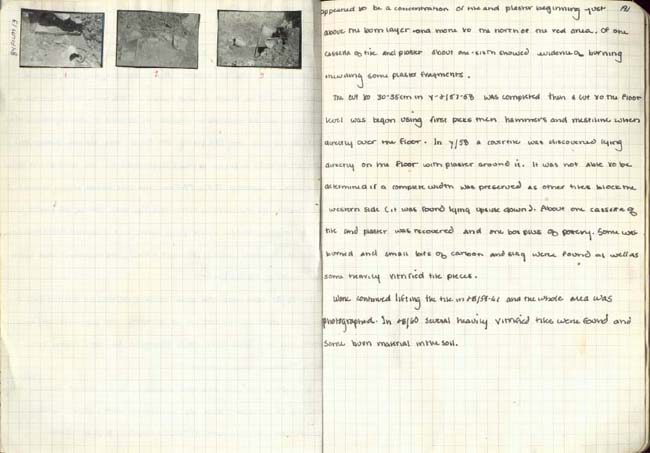 1
2
3
191
appeared to be a concentration of tile and plaster beginning just
above the burn layer and more to the north of the red area. Of one
cassella of tile and plaster about one-sixth showed evidence of burning
including some plaster fragments.
The cut to 30-35cm in Y-+/57-58 was completed then a cut to the floor
level was begun using first picks then hammers and mestiline when
directly over the floor. In Y/58 a covertile was discovered lying
directly on the floor with plaster around it. It was not able to be
determined if a complete width was preserved as other tiles block the
western side (it was found lying upside down). About one cassella of
tile and plaster was recovered and one box plus of pottery. Some was
burned and small bits of carbon and slag were found as well as
some heavily vitrified tile pieces.
Work continued lifting the tile in +B/58-61 and the whole area was
photographed. In +B/60 several heavily vitrified tiles were found and
some burn material in the soil.